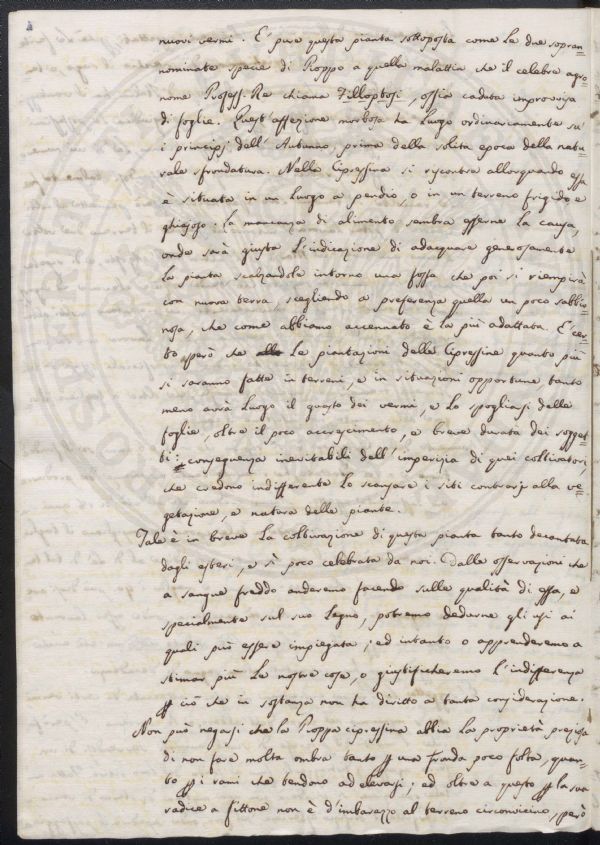 nuovi vermi. E' pure questa pianta sottoposta come le due sopran=
nominate specie di Pioppo a quella malattia che il celebre agro=
nome Profess. Re chiama Filloptosi, ossia cadata improvvisa
di foglie. Quest'affezione morbosa ha luogo ordinariamente su
i principj dell'Autunno, prima della solita epoca della natu=
rale sfrondatura. Nella Cipressina si riscontra allorquando essa
è situata in un luogo a pendio, o in un terreno frigido e
ghiajoso: la mancanza di alimento sembra esserne la causa,
onde sarà giusta l'indicazione di adacquare generosamente
la pianta scalzandola intorno una fossa che poi si riempirà
con nuova terra, scegliendo a preferenza quella un poco sabbio=
nosa, che come abbiamo accennato è la più adattata. E' cer=
to però che le piantazioni delle Cipressine quanto più
si saranno fatte in terreni, e in situazioni opportune tanto
meno avrà luogo il guasto dei vermi, e lo spogliarsi delle
foglie, oltre il poco accrescimento, e breve durata dei sogget=
ti: conseguenza inevitabili dell'imperizia di quei coltivatori
che credono indifferente lo scansare i siti contrarj alla ve=
getazione, e natura delle piante.
Tale è in breve la coltivazione di questa pianta tanto decantata
dagli esteri, e sì poco celebrata da noi. Dalle osservazioni che
a sangue freddo anderemo facendo sulle qualità di essa, e
specialmente sul suo legno, potremo dedurne gli usi ai
quali può essere impiegata; ed intanto o apprenderemo a
stimar più le nostre cose, o giustificheremo l'indifferenza
p ciò che in sostanza non ha diritto a tanta considerazione.
Non può negarsi che la Pioppa cipressina abbia la proprietà preziosa
di non fare molta ombra tanto p una fronda poco folta, quan=
to p i rami che tendono ad elevarsi; ed oltre a questo p la sua
radice a fittone non è d'imbarazzo al terreno circonvicino, però